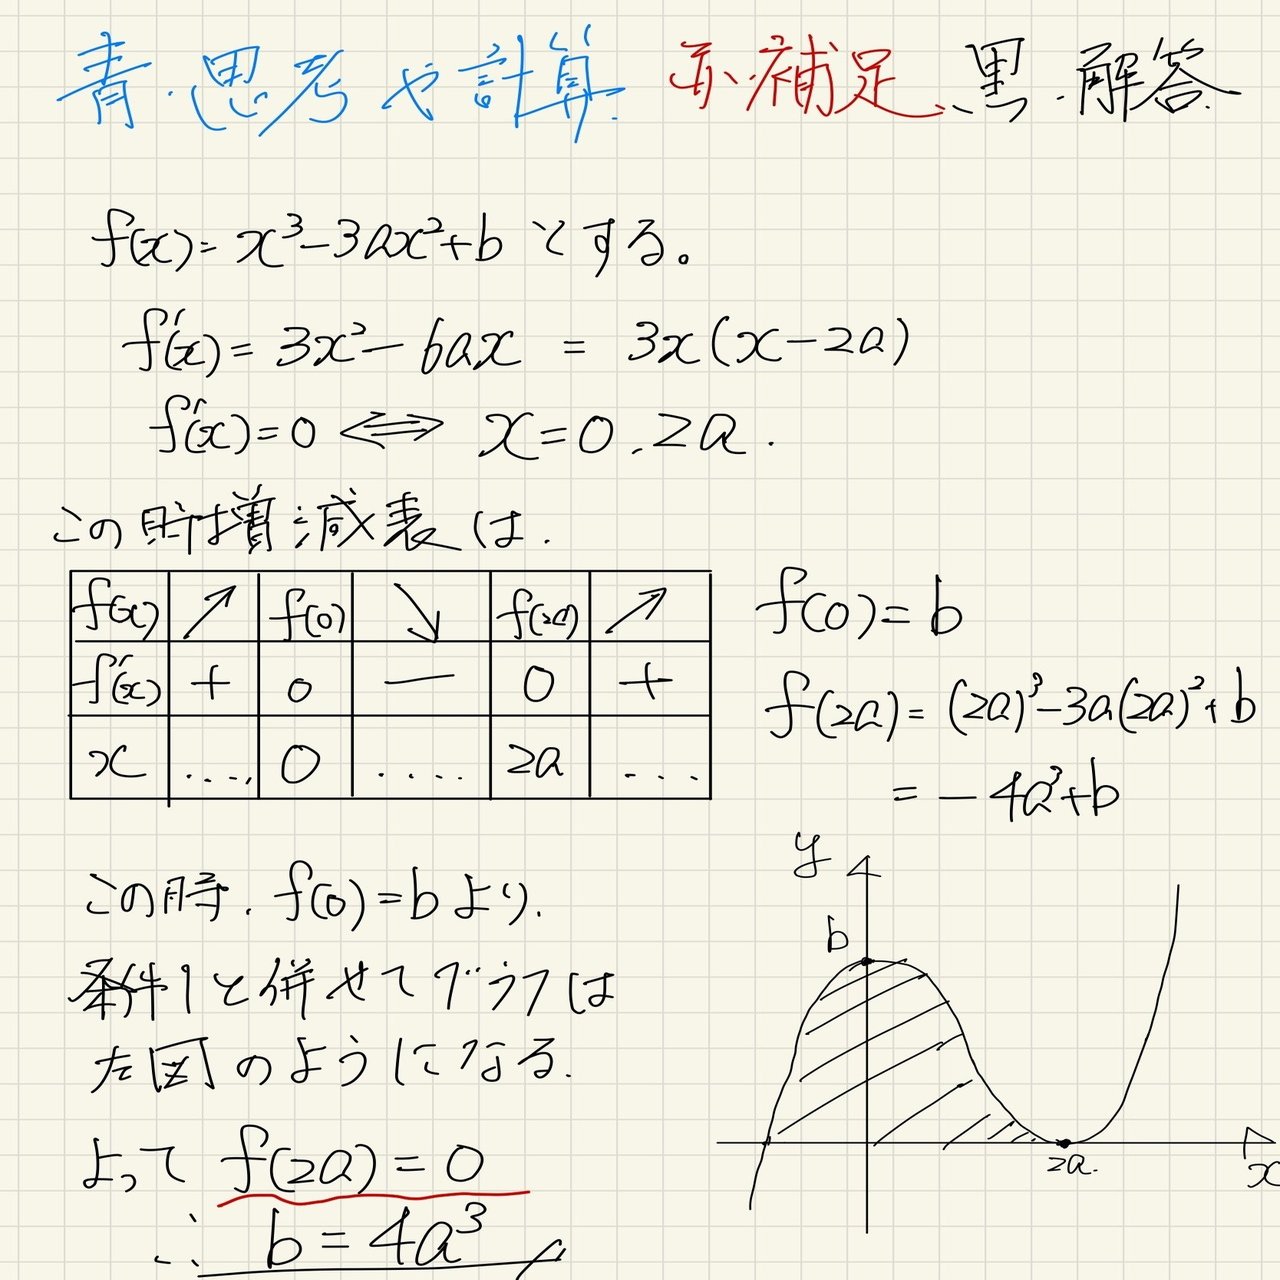 青.思考や計算 赤.補足、黒.解答.
f(x)=x³-3ax²+bとする。
f'(x)=3x²-6ax = 3x(x-2a)
f'(x)=0⇔x=0.2a.
この時増減表は.
f(x) ↗ f(0) ↘ f(2a) ↗
f'(x) + 0 - 0 +
x .... 0 ..... 2a ...
f(0)=b
f(2a)=(2a)³-3a(2a)²+b
=-4a³+b
この時.f(0)=bより.
条件1と併せてグラフは
左図のようになる.
よって f(2a)=0
∴ b=4a³
y
b
2a.
x